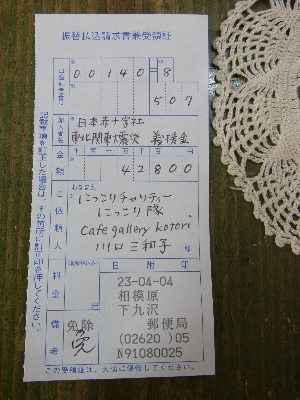 振替払込請求書兼受領証
00140=8
507
加入者名
日本赤十字社
東北関東大震災 義援金
金額
42800
ご依頼人
おなまえ
にっこりチャリティー
にっこり隊
Cafe gallery kotori
川口三和子 様
料金
日附印
23-04-04
相模原
下九沢
郵便局
(02620)05
N91080025
備考
免除
記載事項を訂正した場合は、その箇所に訂正印を押してください。
この受領証は、大切に保管してください。